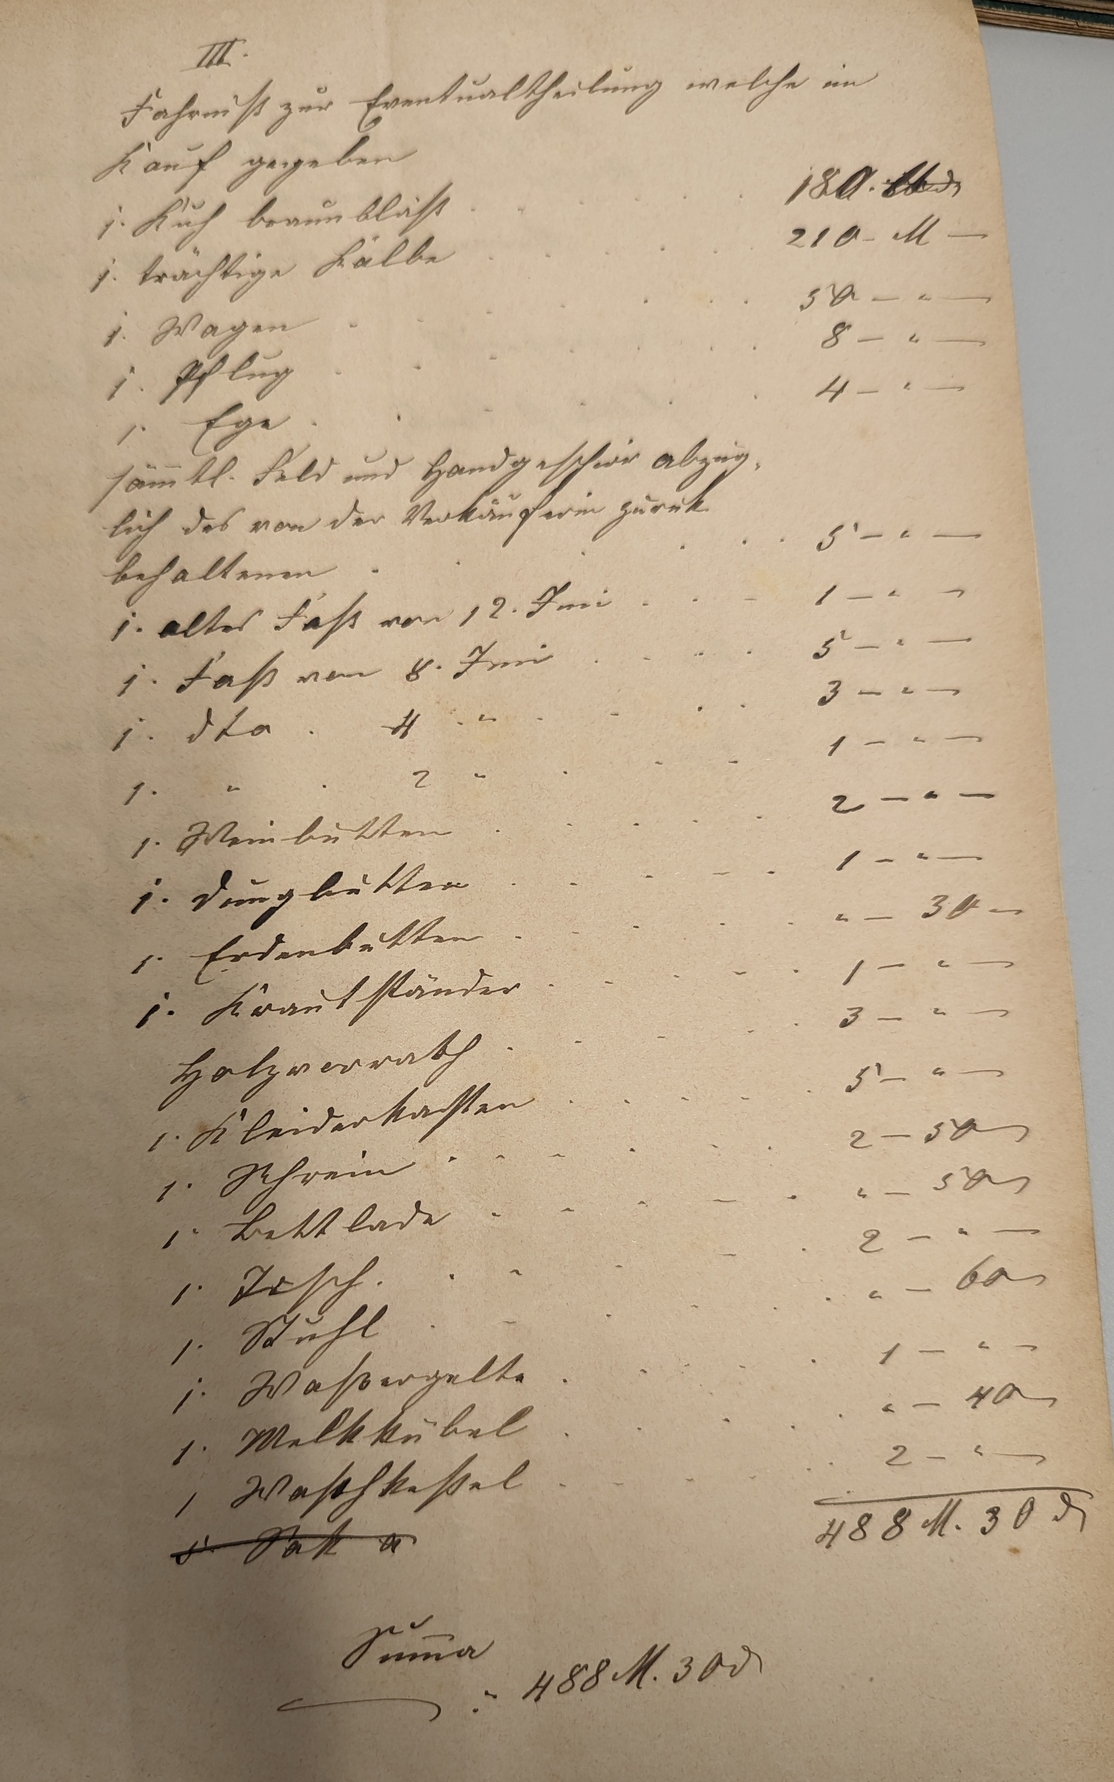 III.
Fahrniß zur Eventualtheilung welche in
Kauf gegeben
1. Kuh braunbläß . . . . . 180. M
1. trächtige Kalbe . . . . 210 - M -
1. Wagen . . . . . . 50 - " -
1. Pflug . . . . . . 8 - " -
1. Ege . . . . . . 4 - " -
sämmtl. Feld und Handgeschirr abzüg-
lich des von der Verkäuferin zurük
behaltenen . . . . . 5 - " -
1. altes Faß von 12. Imi . . . 1 - " -
1. Faß von 8. Imi . . . . 5 - " -
1. dto . 4 " . . . . 3 - " -
1. " . 2 " . . . 1 - " -
1. Weinbutten . . . . . 2 - " -
1. Dungbutten . . . . . 1 - " -
1. Erdenbutten . . . . . " - 30 -
1. Krautständer . . . . . 1 - " -
Holzvorrath . . . . . 3 - " -
1. Kleiderkasten . . . . . 5 - " -
1. Schrein . . . . . . 2 - 50
1. Bettlade . . . . . . " - 50
1. Tisch . . . . . . 2 - " -
1. Stuhl . . . . . . " - 60
1. Waßergelte . . . . . 1 - " -
1. Melkkübel . . . . . " - 40
1 Waschkeßel . . . . . 2 - " -
5. Sak a
488 M. 30 d
Summa
" 488 M. 30 d